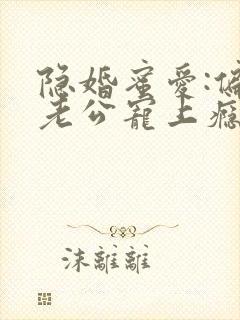 隐婚蜜爱:偏
老公寵上癮
沫離離